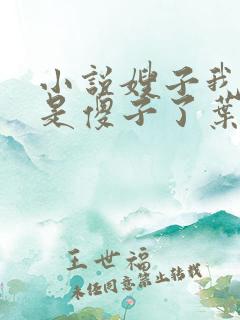 小说嫂子我
是傻子了叶
王世福
未经同意禁止转载